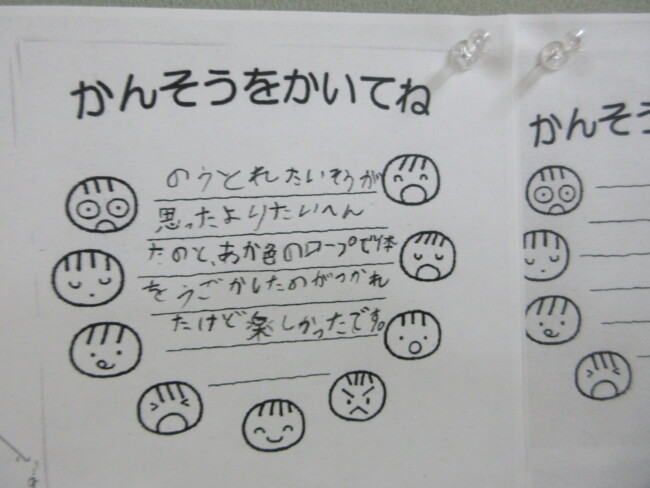 かんそうをかいてね
のうとれたいそうが
思ったよりたいへん
たのと、あか色のロープで体
をうごかしたのがつかれ
たけど楽しかったです。
かんそう